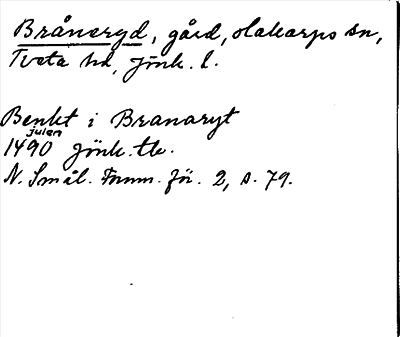 Bråneryd, gård, Hakarps sn,
Tveta hd, Jönk. l.
Benkt i Branaryt
julen
1490 Jönk. tb.
N. Smål. Fornm. för. 2, s. 79.